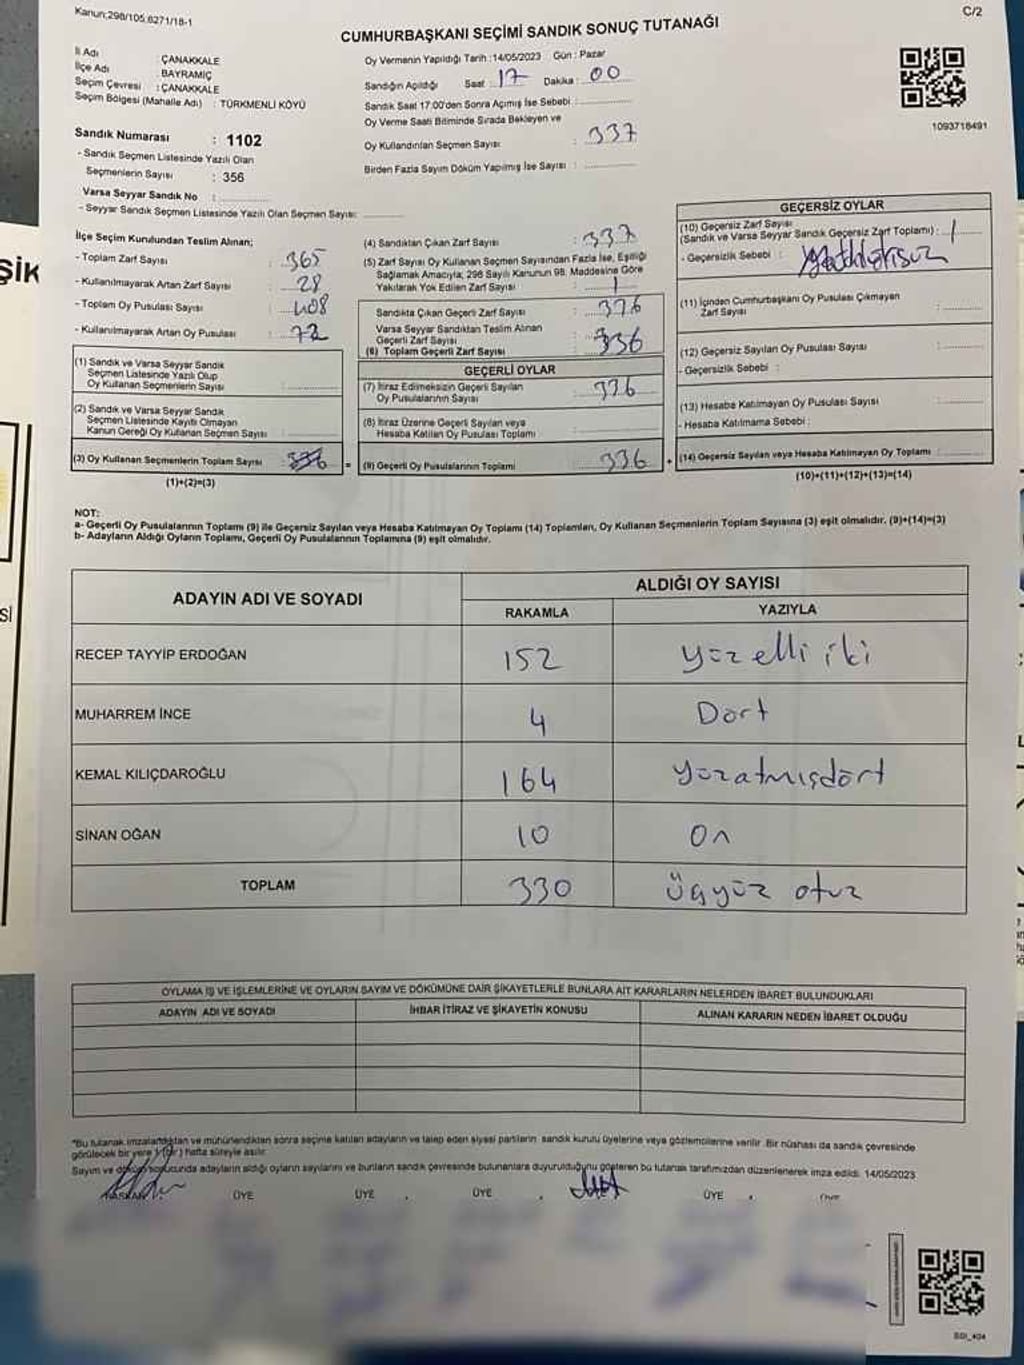 Kanun;298/105,6271/18-1
C/2
CUMHURBAŞKANI SEÇİMİ SANDIK SONUÇ TUTANAĞI
İl Adı : ÇANAKKALE
İlçe Adı : BAYRAMİÇ
Seçim Çevresi : ÇANAKKALE
Seçim Bölgesi (Mahalle Adı) : TÜRKMENLİ KÖYÜ
Sandık Numarası : 1102
- Sandık Seçmen Listesinde Yazılı Olan
Seçmenlerin Sayısı : 356
Varsa Seyyar Sandık No :
- Seyyar Sandık Seçmen Listesinde Yazılı Olan Seçmen Sayısı:
Oy Vermenin Yapıldığı Tarih :14/05/2023 Gün : Pazar
Sandığın Açıldığı Saat : 17 Dakika : 00
Sandık Saat 17:00'den Sonra Açımış İse Sebebi :
Oy Verme Saati Bitiminde Sırada Bekleyen ve
Oy Kullandırılan Seçmen Sayısı : 337
Birden Fazla Sayım Döküm Yapılmış İse Sayısı :
1093718491
İlçe Seçim Kurulundan Teslim Alınan;
- Toplam Zarf Sayısı : 365
- Kullanılmayarak Artan Zarf Sayısı : 28
- Toplam Oy Pusulası Sayısı : 408
- Kullanılmayarak Artan Oy Pusulası : 72
(1) Sandık ve Varsa Seyyar Sandık
Seçmen Listesinde Yazılı Olup
Oy Kullanan Seçmenlerin Sayısı :
(2) Sandık ve Varsa Seyyar Sandık
Seçmen Listesinde Kayıtlı Olmayan
Kanun Gereği Oy Kullanan Seçmen Sayısı :
(3) Oy Kullanan Seçmenlerin Toplam Sayısı : 336 =
(1)+(2)=(3)
(4) Sandıktan Çıkan Zarf Sayısı : 337
(5) Zarf Sayısı Oy Kullanan Seçmen Sayısından Fazla İse, Eşitliği
Sağlamak Amacıyla; 298 Sayılı Kanunun 98. Maddesine Göre
Yakılarak Yok Edilen Zarf Sayısı : 1
Sandıkta Çıkan Geçerli Zarf Sayısı : 336
Varsa Seyyar Sandıktan Teslim Alınan
Geçerli Zarf Sayısı
(6) Toplam Geçerli Zarf Sayısı : 336
GEÇERLİ OYLAR
(7) İtiraz Edilmeksizin Geçerli Sayılan
Oy Pusulalarının Sayısı : 336
(8) İtiraz Üzerine Geçerli Sayılan veya
Hesaba Katılan Oy Pusulası Toplamı :
(9) Geçerli Oy Pusulalarının Toplamı : 336 +
GEÇERSİZ OYLAR
(10) Geçersiz Zarf Sayısı
(Sandık ve Varsa Seyyar Sandık Geçersiz Zarf Toplamı) : 1
- Geçersizlik Sebebi :
(11) İçinden Cumhurbaşkanı Oy Pusulası Çıkmayan
Zarf Sayısı :
(12) Geçersiz Sayılan Oy Pusulası Sayısı :
- Geçersizlik Sebebi :
(13) Hesaba Katılmayan Oy Pusulası Sayısı :
- Hesaba Katılmama Sebebi :
(14) Geçersiz Sayılan veya Hesaba Katılmayan Oy Toplamı :
(10)+(11)+(12)+(13)=(14)
NOT:
a- Geçerli Oy Pusulalarının Toplamı (9) ile Geçersiz Sayılan veya Hesaba Katılmayan Oy Toplamı (14) Toplamları, Oy Kullanan Seçmenlerin Toplam Sayısına (3) eşit olmalıdır. (9)+(14)=(3)
b- Adayların Aldığı Oyların Toplamı, Geçerli Oy Pusulalarının Toplamına (9) eşit olmalıdır.
ADAYIN ADI VE SOYADI
ALDIĞI OY SAYISI
RAKAMLA YAZIYLA
RECEP TAYYİP ERDOĞAN 152 yüzelli iki
MUHARREM İNCE 4 Dört
KEMAL KILIÇDAROĞLU 164 yüzatmışdört
SİNAN OĞAN 10 On
TOPLAM 330 Üçyüz otuz
OYLAMA İŞ VE İŞLEMLERİNE VE OYLARIN SAYIM VE DÖKÜMÜNE DAİR ŞİKAYETLERLE BUNLARA AİT KARARLARIN NELERDEN İBARET BULUNDUKLARI
ADAYIN ADI VE SOYADI İHBAR İTİRAZ VE ŞİKAYETİN KONUSU ALINAN KARARIN NEDEN İBARET OLDUĞU
*Bu tutanak imzalandıktan ve mühürlendikten sonra seçime katılan adayların ve talep eden siyasi partilerin sandık kurulu üyelerine veya gözlemcilerine verilir. Bir nüshası da sandık çevresinde
görülecek bir yere 1 (bir) hafta süreyle asılır.
Sayım ve döküm sonucunda adayların aldığı oyların sayılarını ve bunların sandık çevresinde bulunanlara duyurulduğunu gösteren bu tutanak tarafımızdan düzenlenerek imza edildi. 14/05/2023
BAŞKAN ÜYE ÜYE ÜYE ÜYE ÜYE